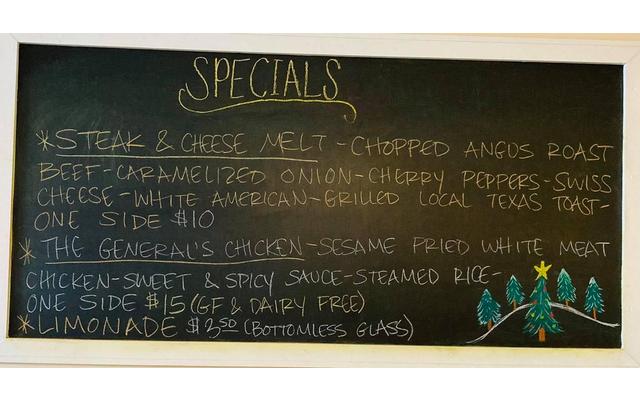 SPECIALS
*STEAK & CHEESE MELT-CHOPPED ANGUS ROAST
BEEF-CARAMELIZED ONION-CHERRY PEPPERS-SWISS
CHEESE-WHITE AMERICAN-GRILLED LOCAL TEXAS TOAST-
ONE SIDE $10
* THE GENERAL'S CHICKEN-SESAME FRIED WHITE MEAT
CHICKEN-SWEET & SPICY SAUCE-STEAMED RICE-
ONE SIDE $15 (GF & DAIRY FREE)
*LIMONADE $3.50 (BOTTOMLESS GLASS)